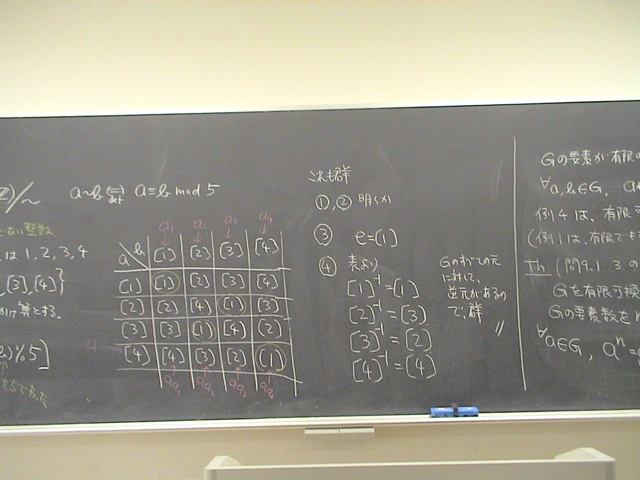 Z)/~ a~b ⇔ a≡b mod 5
でない整数
は 1, 2, 3, 4
[3], [4]}
け算とする。
%5]
a₁ a₂ a₃ a₄
a b [1] [2] [3] [4]
[1] [1] [2] [3] [4]
[2] [2] [4] [1] [3]
[3] [3] [1] [4] [2]
a [4] [4] [3] [2] [1]
aa₁ aa₂ aa₃ aa₄
これも群
①, ② 明らか
③ e=[1]
④ 表より
[1]⁻¹=[1]
[2]⁻¹=[3]
[3]⁻¹=[2]
[4]⁻¹=[4]
Gのすべての元
に対して、
逆元があるの
で、群 //
Gの要素が有限の
∀a,b∈G, a
例4は、有限
(例1は、有限でも
Th (問9.1 3.の
Gを有限可換
Gの要素数をn
∀a∈G, aⁿ=